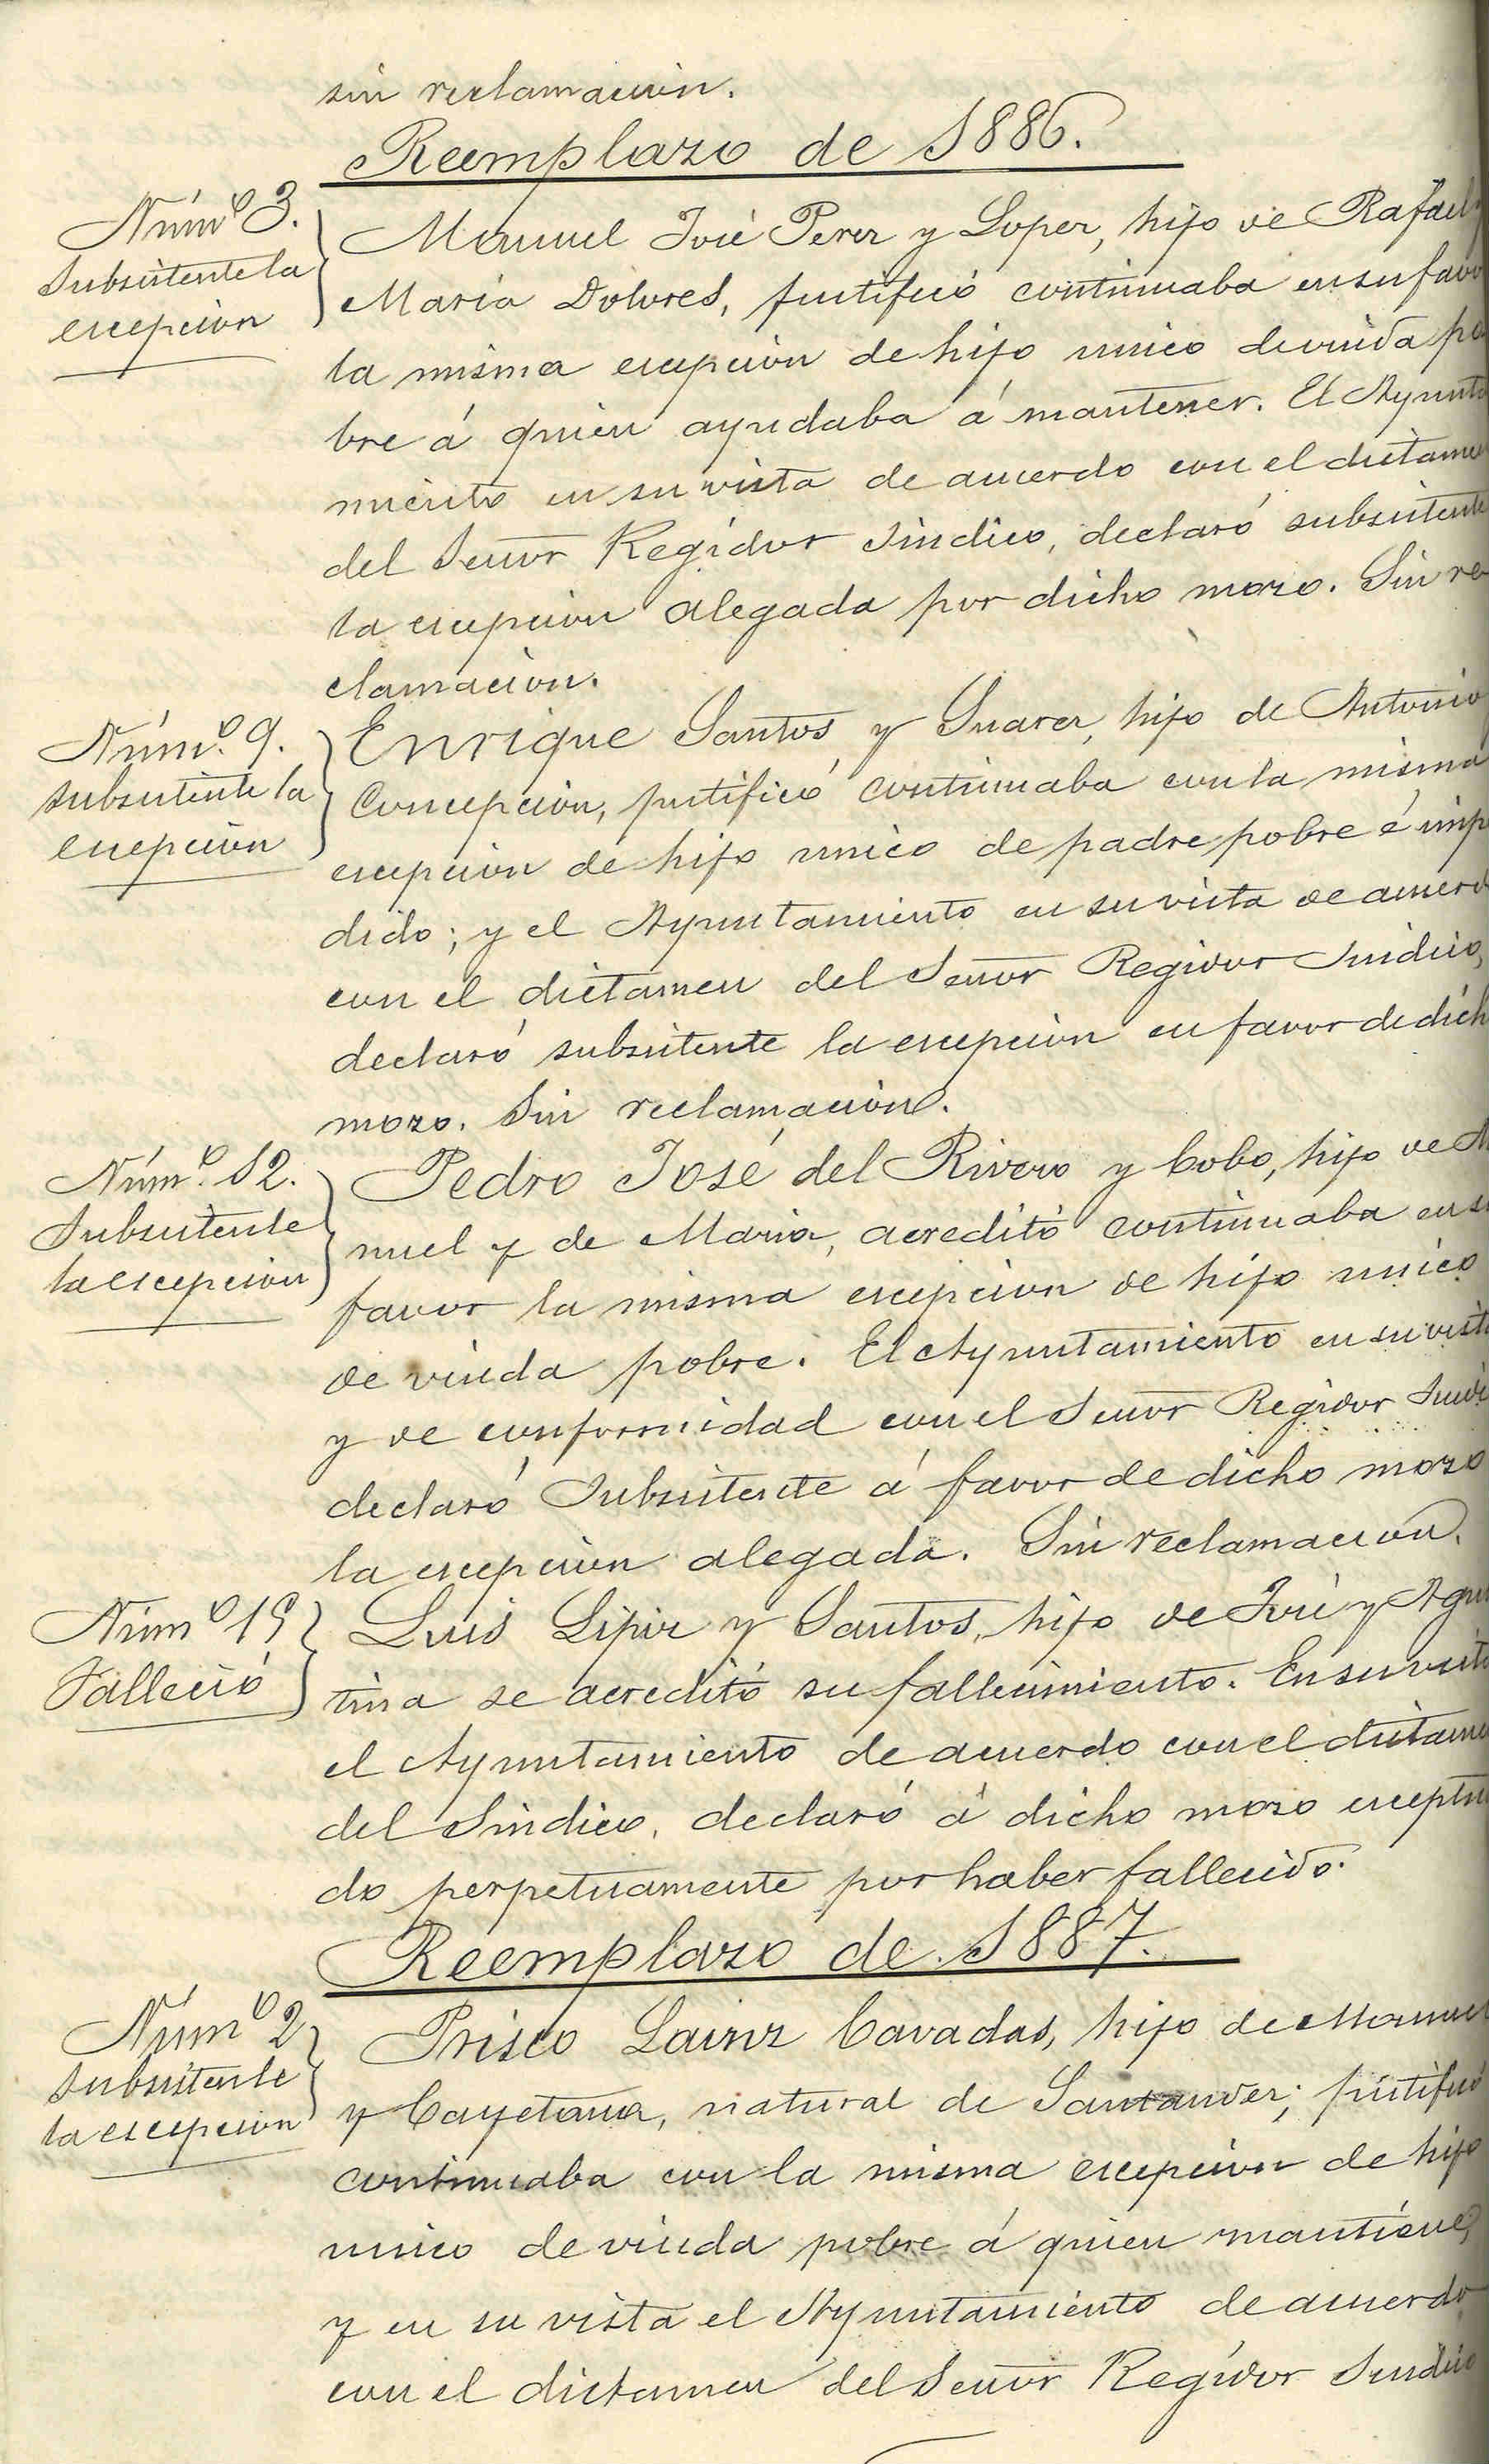 sin reclamación.
Reemplazo de 1886.
Núm.º 3.
Subsistente la
escepción
Manuel José Perez y Lopez, hijo de Rafael y
María Dolores, justificó continuaba en su favo
la misma escepción de hijo unico de viuda po
bre á quien ayudaba á mantener. El Ayunta
miento en su vista de acuerdo con el dictamen
del Señor Regidor Sindico, declaró subsistente
la escepción alegada por dicho mozo. Sin re
clamación.
Núm.º 9.
subsistente la
escepción
Enrique Santos y Suarez, hijo de Antonio y
Concepción, justificó continuaba con la misma
escepción de hijo unico de padre pobre é impe
dido; y el Ayuntamiento en su vista de acuerd
con el dictamen del Señor Regidor Sindico,
declaró subsistente la escepción en favor de dich
mozo. Sin reclamación.
Núm.º 12.
Subsistente
la escepción
Pedro José del Rivero y Cobo, hijo de M
nuel y de María, acreditó continuaba en su
favor la misma escepcion de hijo unico
de viuda pobre. El Ayuntamiento en su vista
y de conformidad con el Señor Regidor Sindi
declaró Subsistente á favor de dicho mozo
la escepción alegada. Sin reclamación.
Núm.º 19
Falleció
Luis Lipiz y Santos, hijo de José y Agus
tina se acreditó su fallecimiento. En su vista
el Ayuntamiento de acuerdo con el dictamen
del Sindico, declaró á dicho mozo esceptua
do perpetuamente por haber fallecido.
Reemplazo de 1887.
Núm.º 2
subsistente
la escepción
Prisco Lainz Cavadas, hijo de Manuel
y Cayetana, natural de Santander; justificó
continuaba con la misma escepción de hijo
unico de viuda pobre á quien mantiene,
y en su vista el Ayuntamiento de acuerdo
con el dictamen del Señor Regidor Sindico